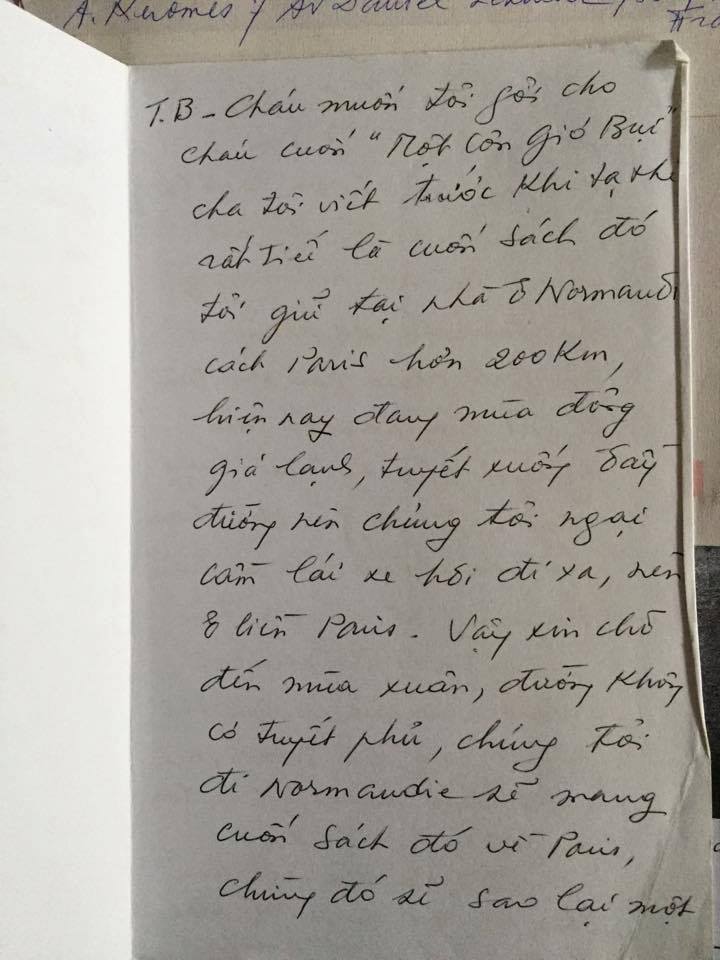 A. Keromes y Av Daniel
T.B - Cháu muốn tôi gởi cho
cháu cuốn "Một Cơn Gió Bụi"
cha tôi viết trước khi tạ thế
rất tiếc là cuốn sách đó
tôi giữ tại nhà ở Normandi
cách Paris hơn 200 Km,
hiện nay đang mùa đông
giá lạnh, tuyết xuống đầy
đường nên chúng tôi ngại
cầm lái xe hơi đi xa, nên
ở liền Paris. Vậy xin chờ
đến mùa xuân, đường không
có tuyết phủ, chúng tôi
đi Normandie sẽ mang
cuốn sách đó về Paris,
chừng đó sẽ sao lại một